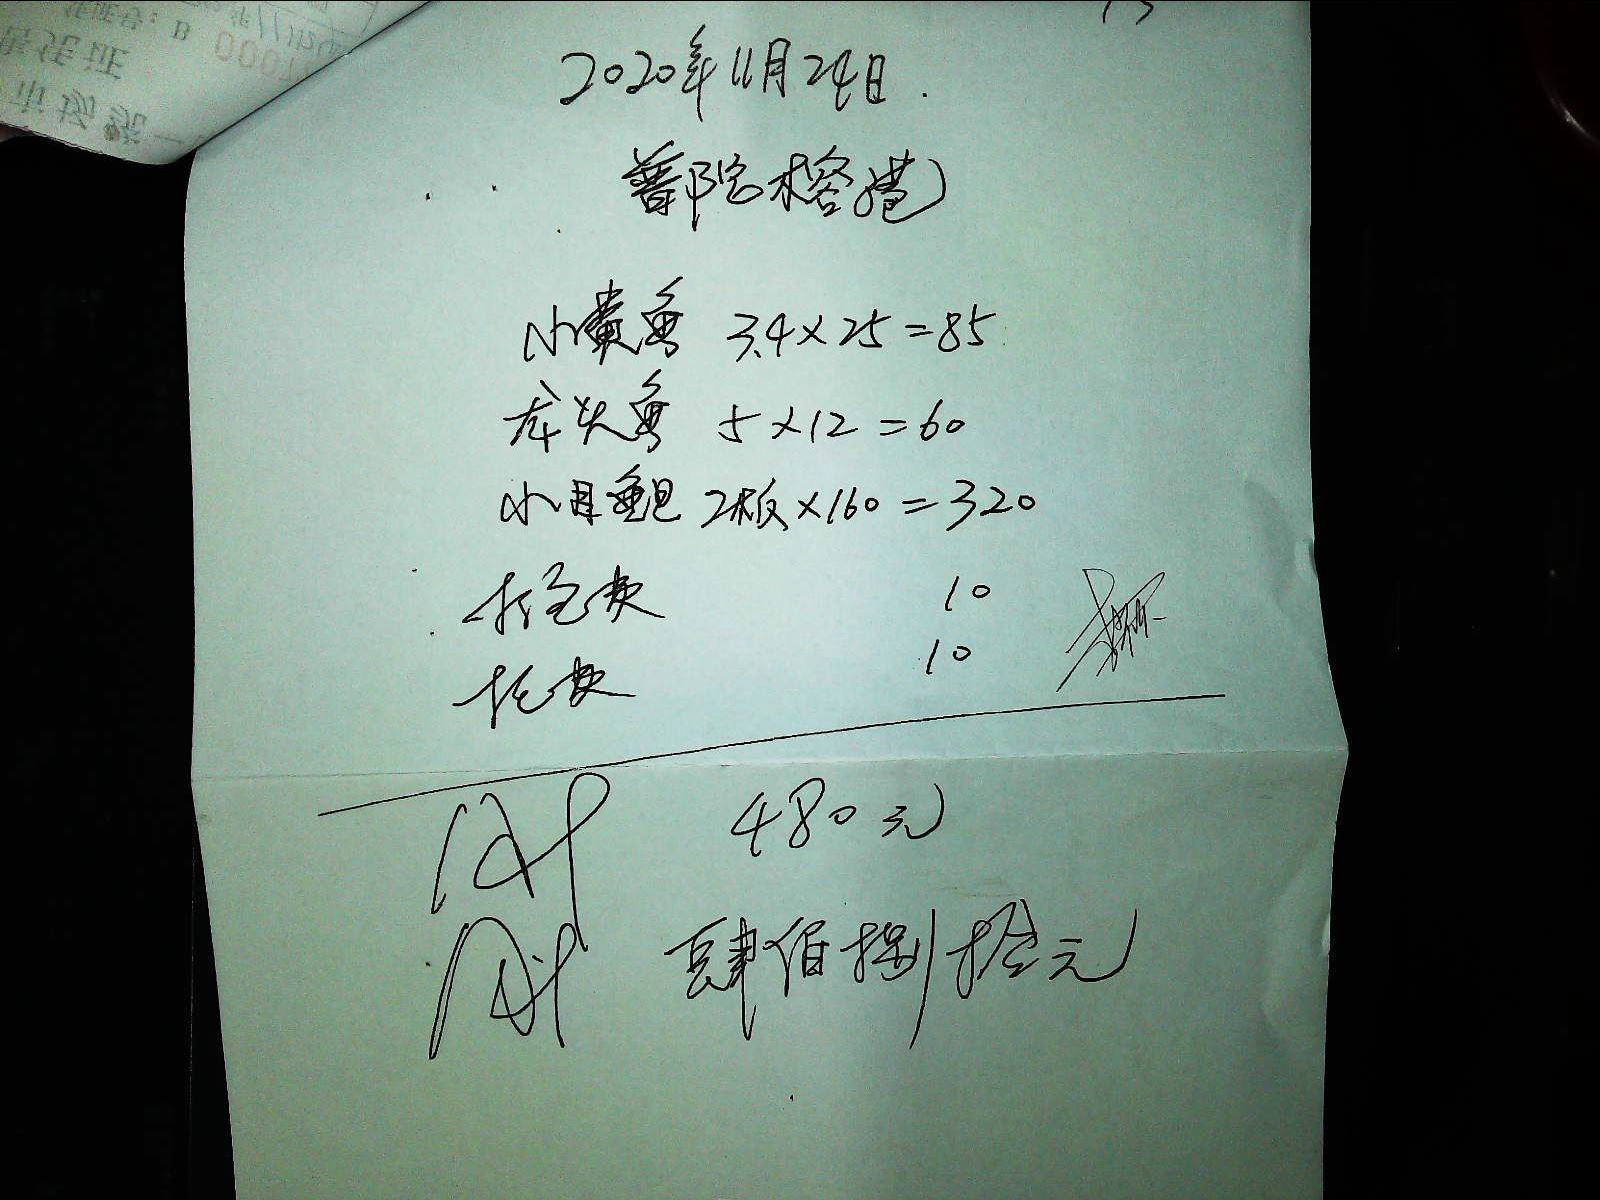 2020年11月24日.
普陀榕港
小黄鱼 3.4×25=85
龙头鱼 5×12=60
小目鱼 2板×160=320
打包费 10
托费 10
480元
肆佰捌拾元